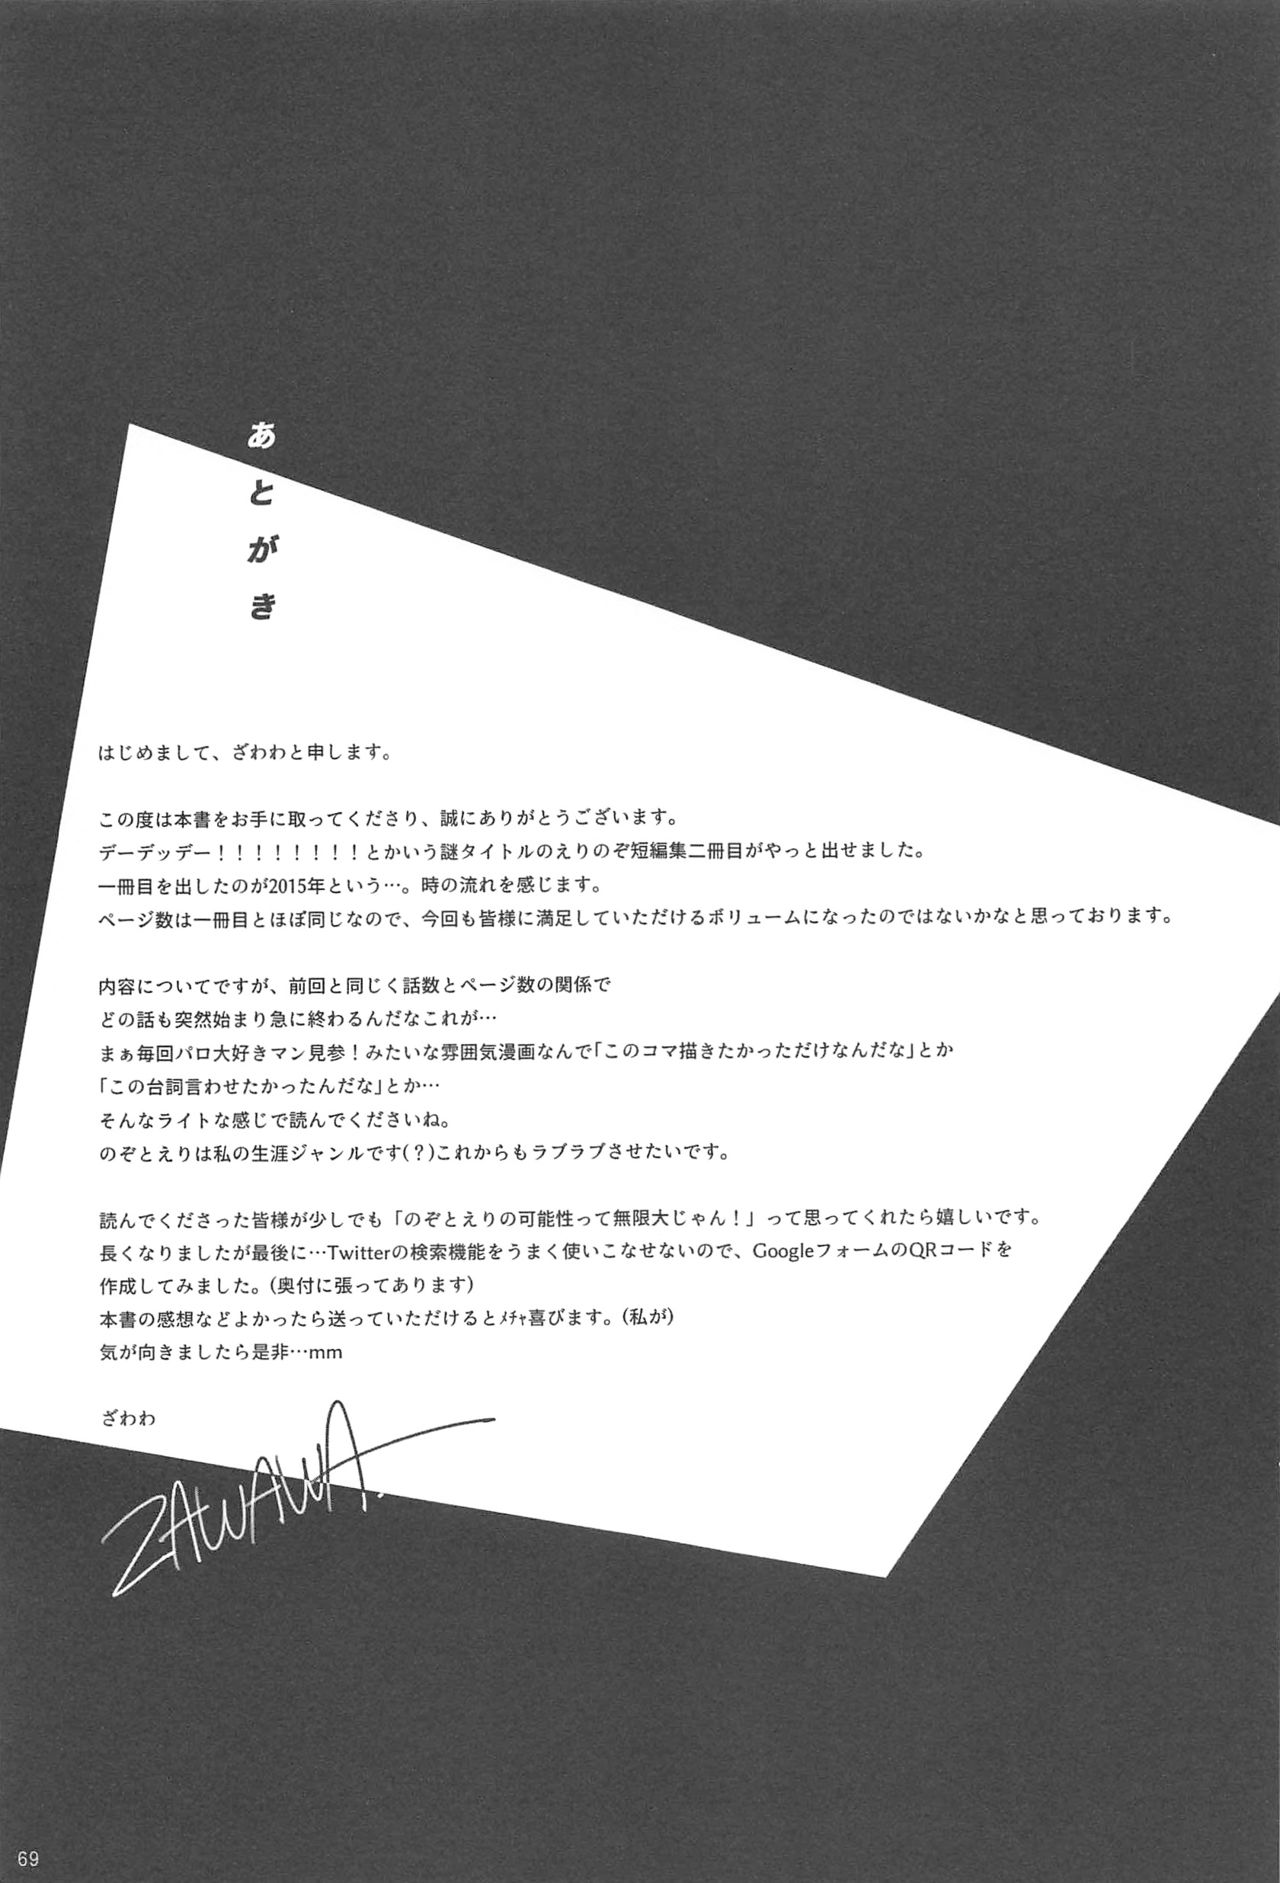 あとがき
はじめまして、ざわわと申します。
この度は本書をお手に取ってくださり、誠にありがとうございます。
デーデッデー！！！！！！！！とかいう謎タイトルのえりのぞ短編集二冊目がやっと出せました。
一冊目を出したのが2015年という…。時の流れを感じます。
ページ数は一冊目とほぼ同じなので、今回も皆様に満足していただけるボリュームになったのではないかなと思っております。
内容についてですが、前回と同じく話数とページ数の関係で
どの話も突然始まり急に終わるんだなこれが…
まぁ毎回パロ大好きマン見参！みたいな雰囲気漫画なんで「このコマ描きたかっただけなんだな」とか
「この台詞言わせたかったんだな」とか…
そんなライトな感じで読んでくださいね。
のぞとえりは私の生涯ジャンルです(？)これからもラブラブさせたいです。
読んでくださった皆様が少しでも「のぞとえりの可能性って無限大じゃん！」って思ってくれたら嬉しいです。
長くなりましたが最後に…Twitterの検索機能をうまく使いこなせないので、GoogleフォームのQRコードを
作成してみました。(奥付に張ってあります)
本書の感想などよかったら送っていただけるとﾒﾁｬ喜びます。(私が)
気が向きましたら是非…mm
ざわわ
ZAWAWA.
69